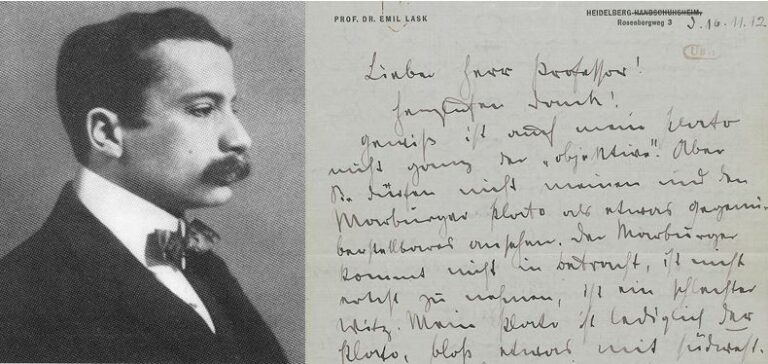 PROF. DR. EMIL LASK
HEIDELBERG-HANDSCHUHSHEIM,
Rosenbergweg 3
16.11.12
Lieber Herr Professor!
Herzlichen Dank!
Gewiß ist auch mein Plato
nicht ganz der „objektive“. Aber
Sie dürfen nicht meinen und den
Marburger Plato als etwas gegenü-
berstellbares ansehen. Der Marburger
kommt nicht in Betracht, ist nicht
ernst zu nehmen, ist ein schlechter
Witz. Mein Plato ist lediglich der
Plato, bloß etwas mit südwest.